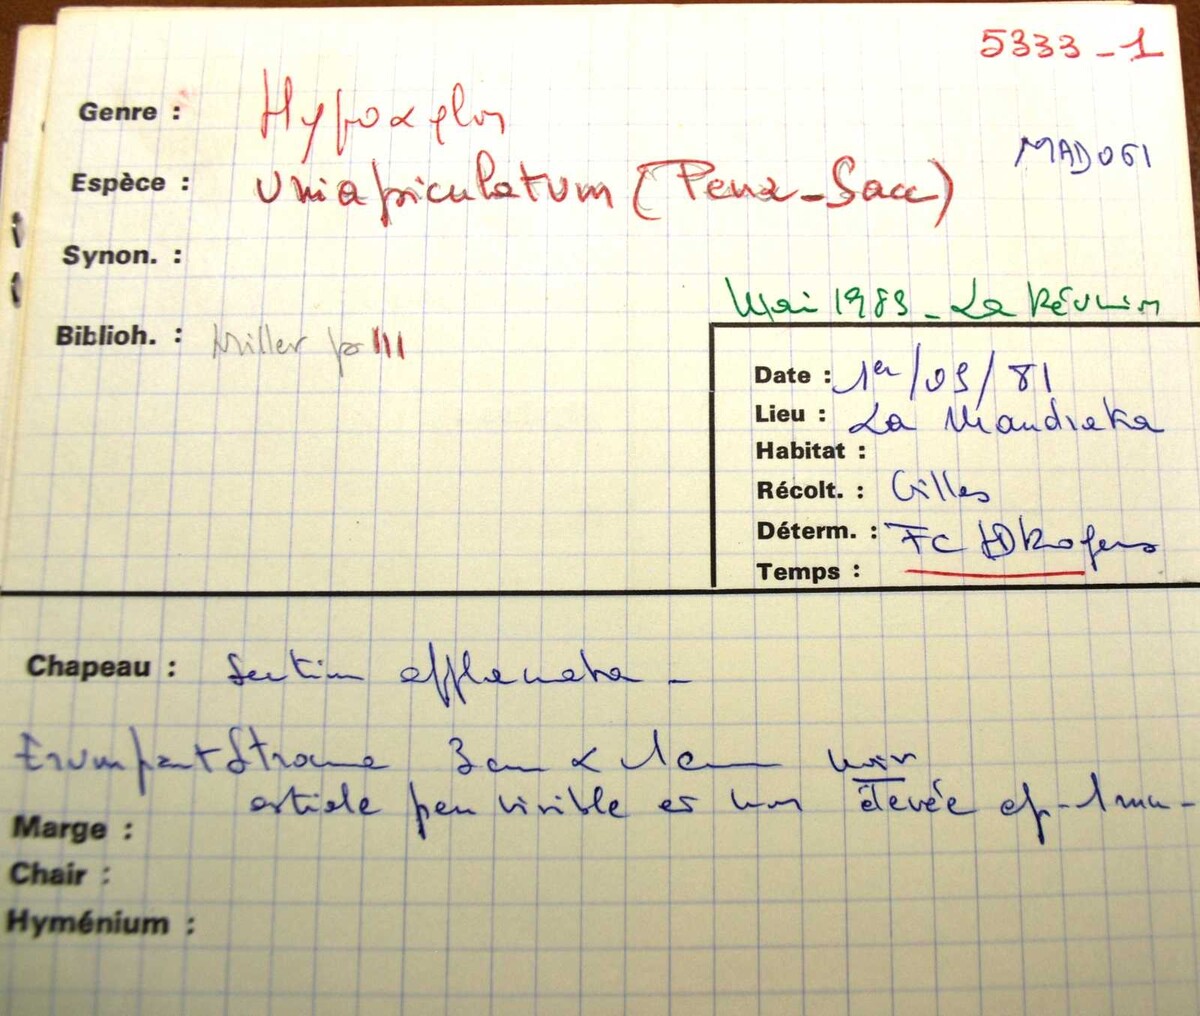 5333-1
Genre : Hypoxylon
MAD061
Espèce : uniapiculatum (Penz-Sacc)
Synon. :
Mai 1983 - La Réunion
Biblioh. : Miller p 111
Date : 1er/03/81
Lieu : La Mandraka
Habitat :
Récolt. : Gilles
Déterm. : FC JDRogers
Temps :
Chapeau : Section
Erumpant Stroma 3cm x 1cm noir
ostiole peu visible et non élevée ep-1mm-
Marge :
Chair :
Hyménium :